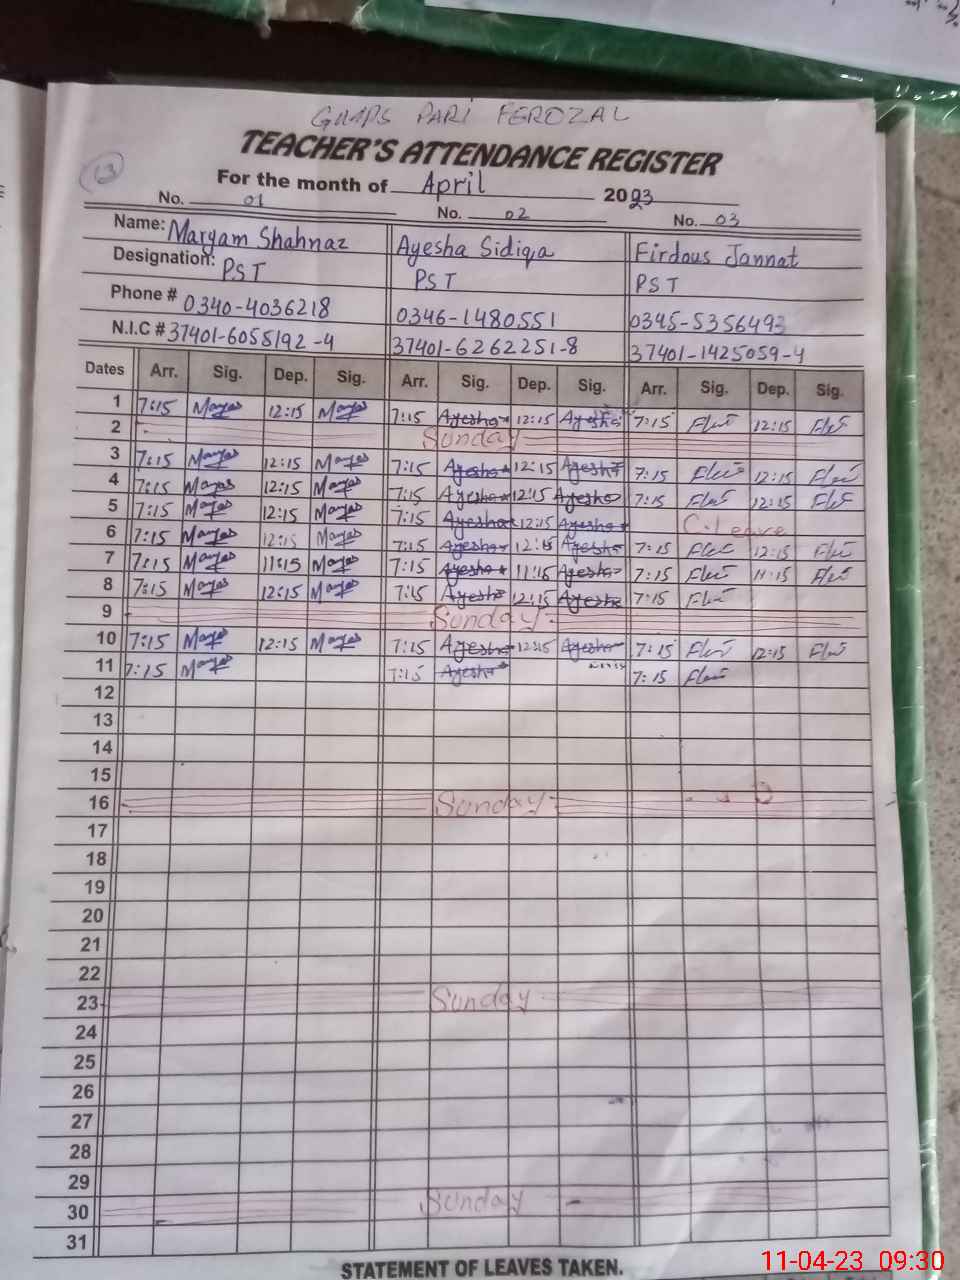 GMPS PARI FEROZAL
TEACHER'S ATTENDANCE REGISTER
13
For the month of April 2023
No. 01 No. 02 No. 03
Name: Maryam Shahnaz Ayesha Sidiqa Firdous Jannat
Designation: PST PST PST
Phone # 0340-4036218 0346-1480551 0345-5356493
N.I.C # 37401-6055192-4 37401-6262251-8 37401-1425059-4
Dates Arr. Sig. Dep. Sig. Arr. Sig. Dep. Sig. Arr. Sig. Dep. Sig.
1 7:15 12:15 7:15 Ayesha 12:15 Ayesha 7:15 12:15
2 Sunday
3 7:15 12:15 7:15 Ayesha 12:15 Ayesha 7:15 12:15
4 7:15 12:15 7:15 Ayesha 12:15 Ayesha 7:15 12:15
5 7:15 12:15 7:15 Ayesha 12:15 Ayesha C.Leave
6 7:15 12:15 7:15 Ayesha 12:15 Ayesha 7:15 12:15
7 7:15 11:15 7:15 Ayesha 11:15 Ayesha 7:15 11:15
8 7:15 12:15 7:15 Ayesha 12:15 Ayesha 7:15
9 Sunday
10 7:15 12:15 7:15 Ayesha 12:15 Ayesha 7:15 12:15
11 7:15 7:15 Ayesha 7:15
12
13
14
15
16 Sunday
17
18
19
20
21
22
23 Sunday
24
25
26
27
28
29
30 Sunday
31
STATEMENT OF LEAVES TAKEN.
11-04-23 09:30